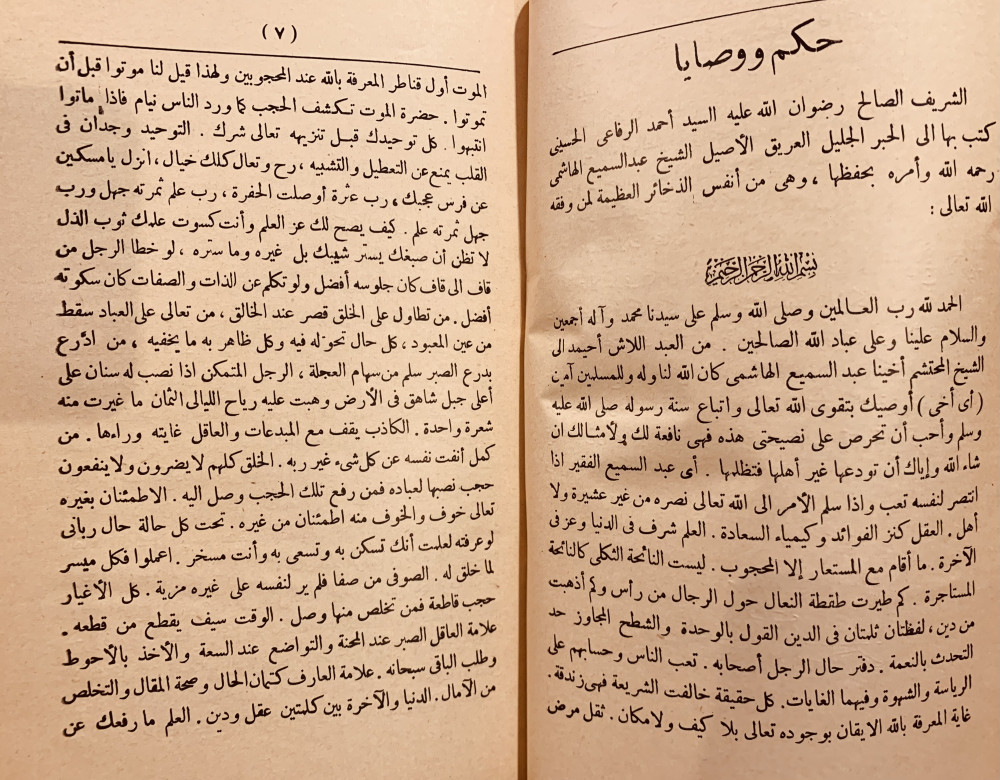 حكم ووصايا
الشريف الصالح رضوان الله عليه السيد أحمد الرفاعى الحسينى
كتب بها الى الحبر الجليل العريق الأصيل الشيخ عبدالسميع الهاشمى
رحمه الله وأمره بحفظها ، وهى من أنفس الذخائر العظيمة لمن وفقه
الله تعالى :
بسم الله الرحمن الرحيم
الحمد لله رب العالمين وصلى الله وسلم على سيدنا محمد وآله أجمعين
والسلام علينا وعلى عباد الله الصالحين . من العبد اللاش أحيمد الى
الشيخ المحتشم أخينا عبد السميع الهاشمى كان الله لنا وله وللمسلمين آمين
( أى أخى ) أوصيك بتقوى الله تعالى واتباع سنة رسوله صلى الله عليه
وسلم وأحب أن تحرص على نصيحتى هذه فهى نافعة لك ولأمثالك ان
شاء الله واياك أن تودعها غير أهلها فتظلمها . أى عبد السميع الفقير اذا
انتصر لنفسه تعب واذا سلم الأمر الى الله تعالى نصره من غير عشيرة ولا
أهل . العقل كنز الفوائد وكيمياء السعادة . العلم شرف فى الدنيا وعز فى
الآخرة . ما أقام مع المستعار إلا المحجوب . ليست النائحة الثكلى كالنائحة
المستاجرة . كم طيرت طقطقة النعال حول الرجال من رأس وكم أذهبت
من دين ، لفظتان ثلمتان فى الدين القول بالوحدة والشطح المجاوز حد
التحدث بالنعمة . دفتر حال الرجل أصحابه . تعب الناس وحسابهم على
الرياسة والشهوة وفيهما الغايات . كل حقيقة خالفت الشريعة فهى زندقة .
غاية المعرفة بالله الايقان بوجوده تعالى بلا كيف ولا مكان . ثقل مرض
( ٧ )
الموت أول قناطر المعرفة بالله عند المحجوبين ولهذا قيل لنا موتوا قبل أن
تموتوا . حضرة الموت تكشف الحجب كما ورد الناس نيام فاذا ماتوا
انتبهوا . كل توحيدك قبل تنزيهه تعالى شرك . التوحيد وجدان فى
القلب يمنع عن التعطيل والتشبيه ، رح وتعال كلك خيال ، انزل يا مسكين
عن فرس عجبك ، رب عثرة أوصلت الحفرة ، رب علم ثمرته جهل ورب
جهل ثمرته علم . كيف يصح لك عز العلم وأنت كسوت علمك ثوب الذل
لا تظن أن صبغك يستر شيبك بل غيره وما ستره ، لو خطا الرجل من
قاف الى قاف كان جلوسه أفضل ولو تكلم عن الذات والصفات كان سكوته
أفضل . من تطاول على الخلق قصر عند الخالق ، من تعالى على العباد سقط
من عين المعبود ، كل حال تحوله فيه وكل ظاهر به ما يخفيه ، من ادّرع
بدرع الصبر سلم من سهام العجلة ، الرجل المتمكن اذا نصب له سنان على
أعلى جبل شاهق فى الأرض وهبت عليه رياح الليالى الثمان ما غيرت منه
شعرة واحدة . الكاذب يقف مع المبدعات والعاقل غايته وراءها . من
كمل أنفت نفسه عن كل شىء غير ربه . الخلق كلهم لا يضرون ولا ينفعون
حجب نصبها لعباده فمن رفع تلك الحجب وصل اليه . الاطمئنان بغيره
تعالى خوف والخوف منه اطمئنان من غيره . تحت كل حالة حال ربانى
لو عرفته لعلمت أنك تسكن به وتسعى به وأنت مسخر . اعملوا فكل ميسر
لما خلق له . الصوفى من صفا فلم ير لنفسه على غيره مزية . كل الأغيار
حجب قاطعة فمن تخلص منها وصل . الوقت سيف يقطع من قطعه .
علامة العاقل الصبر عند المحنة والتواضع عند السعة والأخذ بالأحوط
وطلب الباقى سبحانه . علامة العارف كتمان الحال وصحة المقال والتخلص
من الآمال . الدنيا والآخرة بين كلمتين عقل ودين . العلم ما رفعك عن